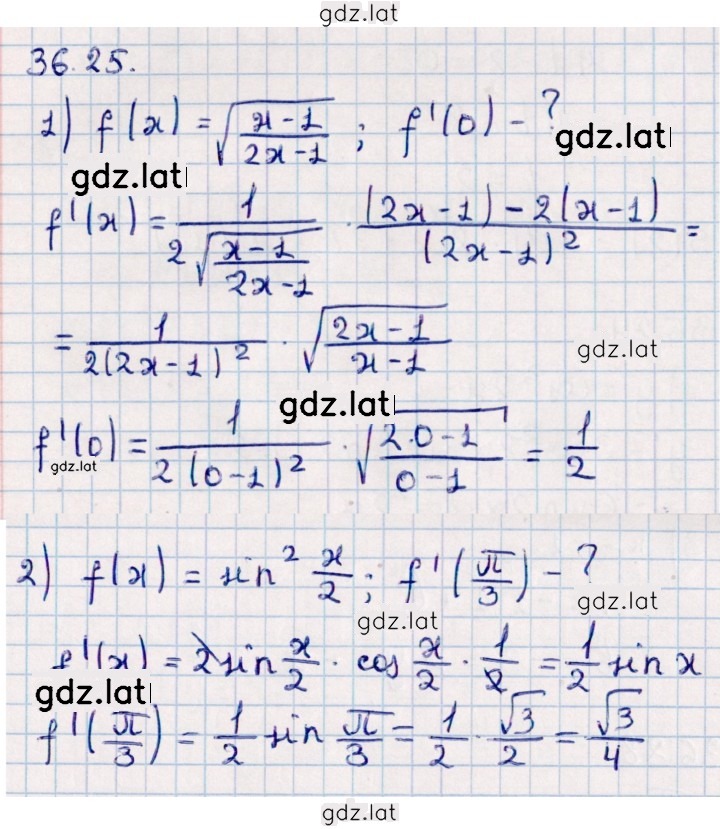 gdz.lat
36.25.
1) f(x) = √((x-1)/(2x-1)) ; f'(0) - ?
gdz.lat
gdz.lat
f'(x) = 1/(2√((x-1)/(2x-1))) · ((2x-1)-2(x-1))/(2x-1)² =
= 1/(2(2x-1)²) · √((2x-1)/(x-1))
gdz.lat
gdz.lat
f'(0) = 1/(2(0-1)²) · √((2·0-1)/(0-1)) = 1/2
gdz.lat
2) f(x) = sin² x/2 ; f'(π/3) - ?
gdz.lat
gdz.lat
f'(x) = 2 sin x/2 · cos x/2 · 1/2 = 1/2 sin x
gdz.lat
f'(π/3) = 1/2 sin π/3 = 1/2 · √3/2 = √3/4
gdz.lat